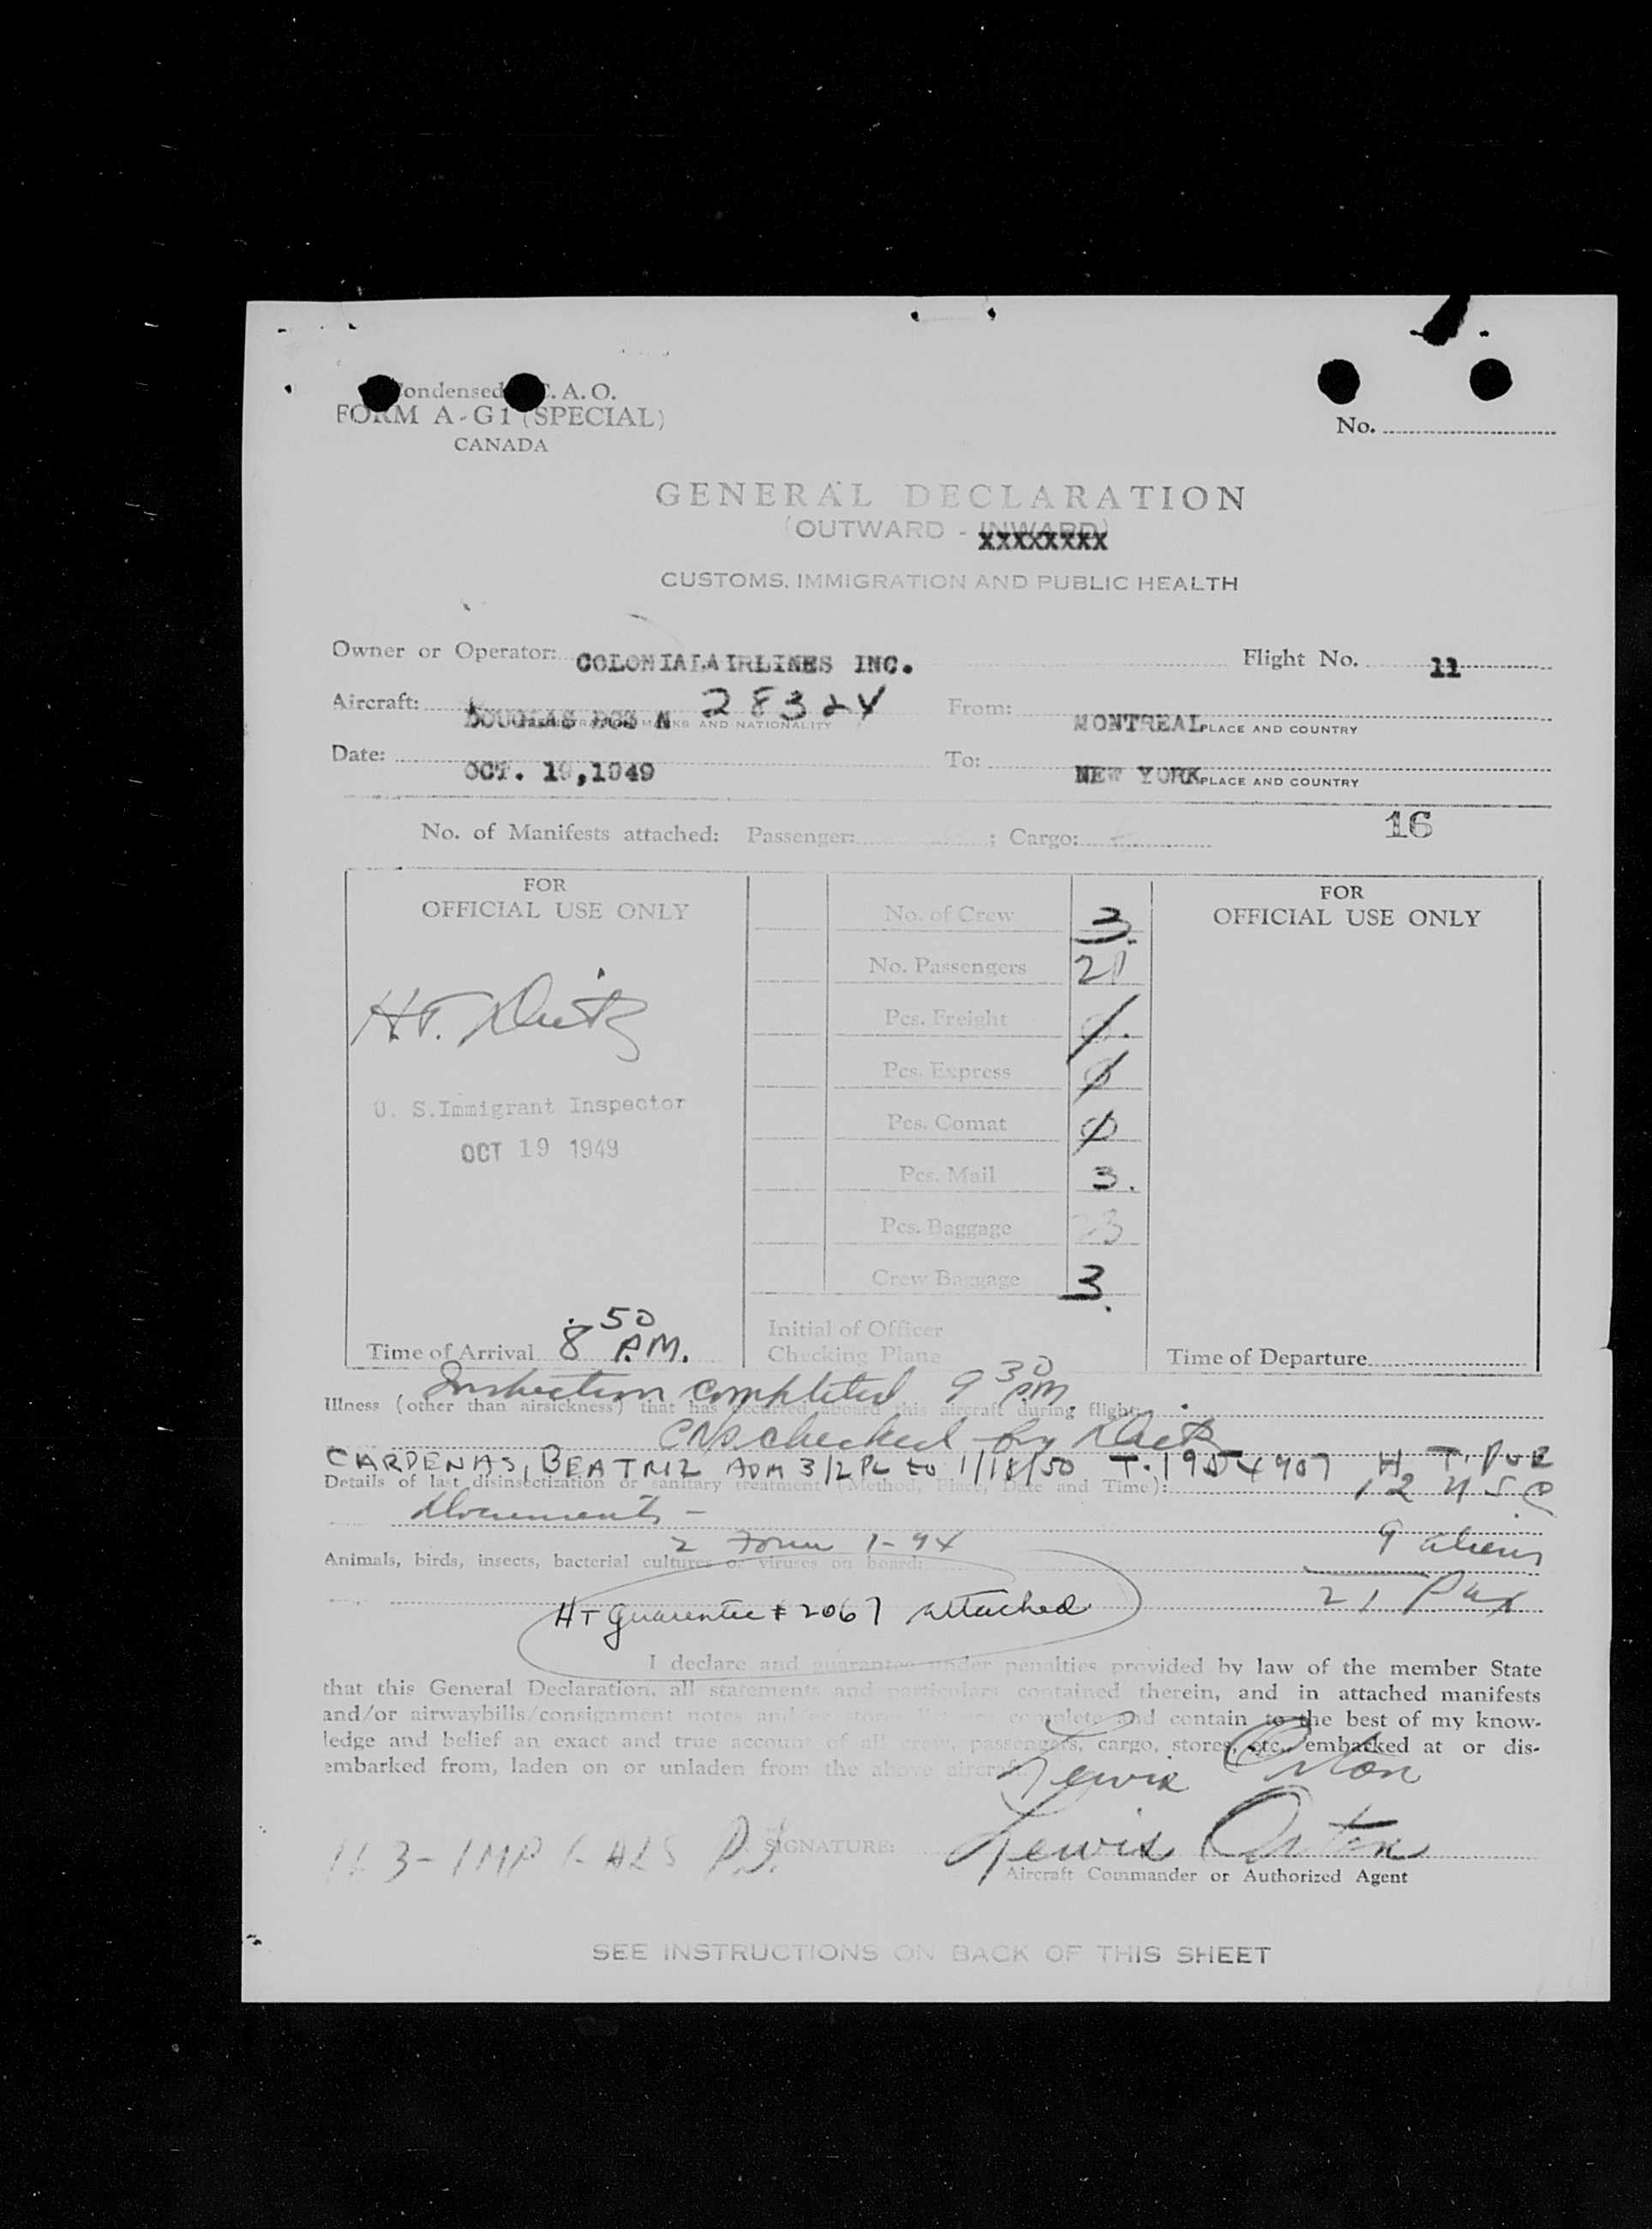 Condensed I.C.A.O.
FORM A-G1 (SPECIAL)
CANADA
No.
GENERAL DECLARATION
(OUTWARD - INWARD)
XXXXXXXX
CUSTOMS, IMMIGRATION AND PUBLIC HEALTH
Owner or Operator: COLONIAL AIRLINES INC. Flight No. 11
Aircraft: DOUGLAS DC3 N 28324 From: MONTREAL PLACE AND COUNTRY
MARKS AND NATIONALITY
Date: OCT. 19,1949 To: NEW YORK PLACE AND COUNTRY
16
No. of Manifests attached: Passenger: ; Cargo:
FOR
OFFICIAL USE ONLY
H.T. Dietz
U. S.Immigrant Inspector
OCT 19 1949
Time of Arrival 8 50 P.M.
No. of Crew 3.
No. Passengers 21
Pcs. Freight
Pcs. Express 0
Pcs. Comat 0
Pcs. Mail 3.
Pcs. Baggage 23
Crew Baggage 3.
Initial of Officer
Checking Plane
FOR
OFFICIAL USE ONLY
Time of Departure
Inspection completed 9 30 PM
Illness (other than airsickness) that has occurred aboard this aircraft during flight:
checked by Dietz
CARDENAS, BEATRIZ ADM 3/2 to 1/18/50 H T.
Details of last disinsectization or sanitary treatment (Method, Place, Date and Time): 12 USC
Documents -
2 Form I-94 9 aliens
Animals, birds, insects, bacterial cultures or viruses on board:
HT guarantee # 2067 attached 21 Pax
I declare and guarantee under penalties provided by law of the member State
that this General Declaration, all statements and particulars contained therein, and in attached manifests
and/or airwaybills/consignment notes and/or stores list are complete and contain to the best of my know-
ledge and belief an exact and true account of all crew, passengers, cargo, stores, etc., embarked at or dis-
embarked from, laden on or unladen from the above aircraft.
Lewis Orton
SIGNATURE: Lewis Orton
Aircraft Commander or Authorized Agent
SEE INSTRUCTIONS ON BACK OF THIS SHEET